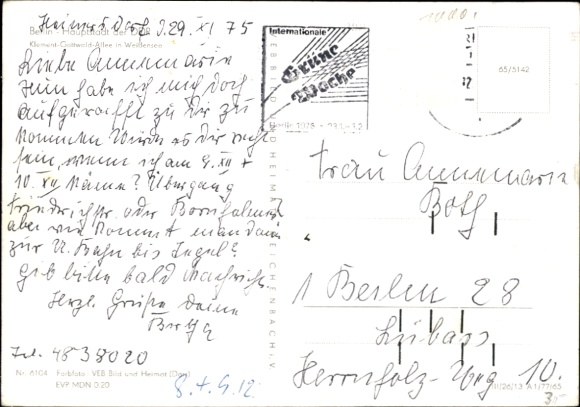 Heinersdorf, d. 29. XI 75
Berlin - Hauptstadt der DDR
Klement-Gottwald-Allee in Weißensee
Liebe Annemarie
nun habe ich mich doch
aufgerafft zu Dir zu
kommen. Würde es Dir recht
sein, wenn ich am 9. XII +
10. XII käme? Übergang
Friedrichstr. oder Bornholmer
aber wie kommt man dann
zur U. Bahn bis Tegel?
Gib bitte bald Nachricht.
Herzl. Grüße Deine
Tel. 4838020
Nr. 6104 Farbfoto: VEB Bild und Heimat (Dorn)
EVP MDN 0,20
8. + 9. 12.
VEB BILD UND HEIMAT REICHENBACH I. V.
Internationale
Grüne
Woche
Berlin 1976
65/5142
Frau Annemarie
Both
1 Berlin 28
Lübars
Herrnholz-Weg 10.
III/26/13 A 1/77/65